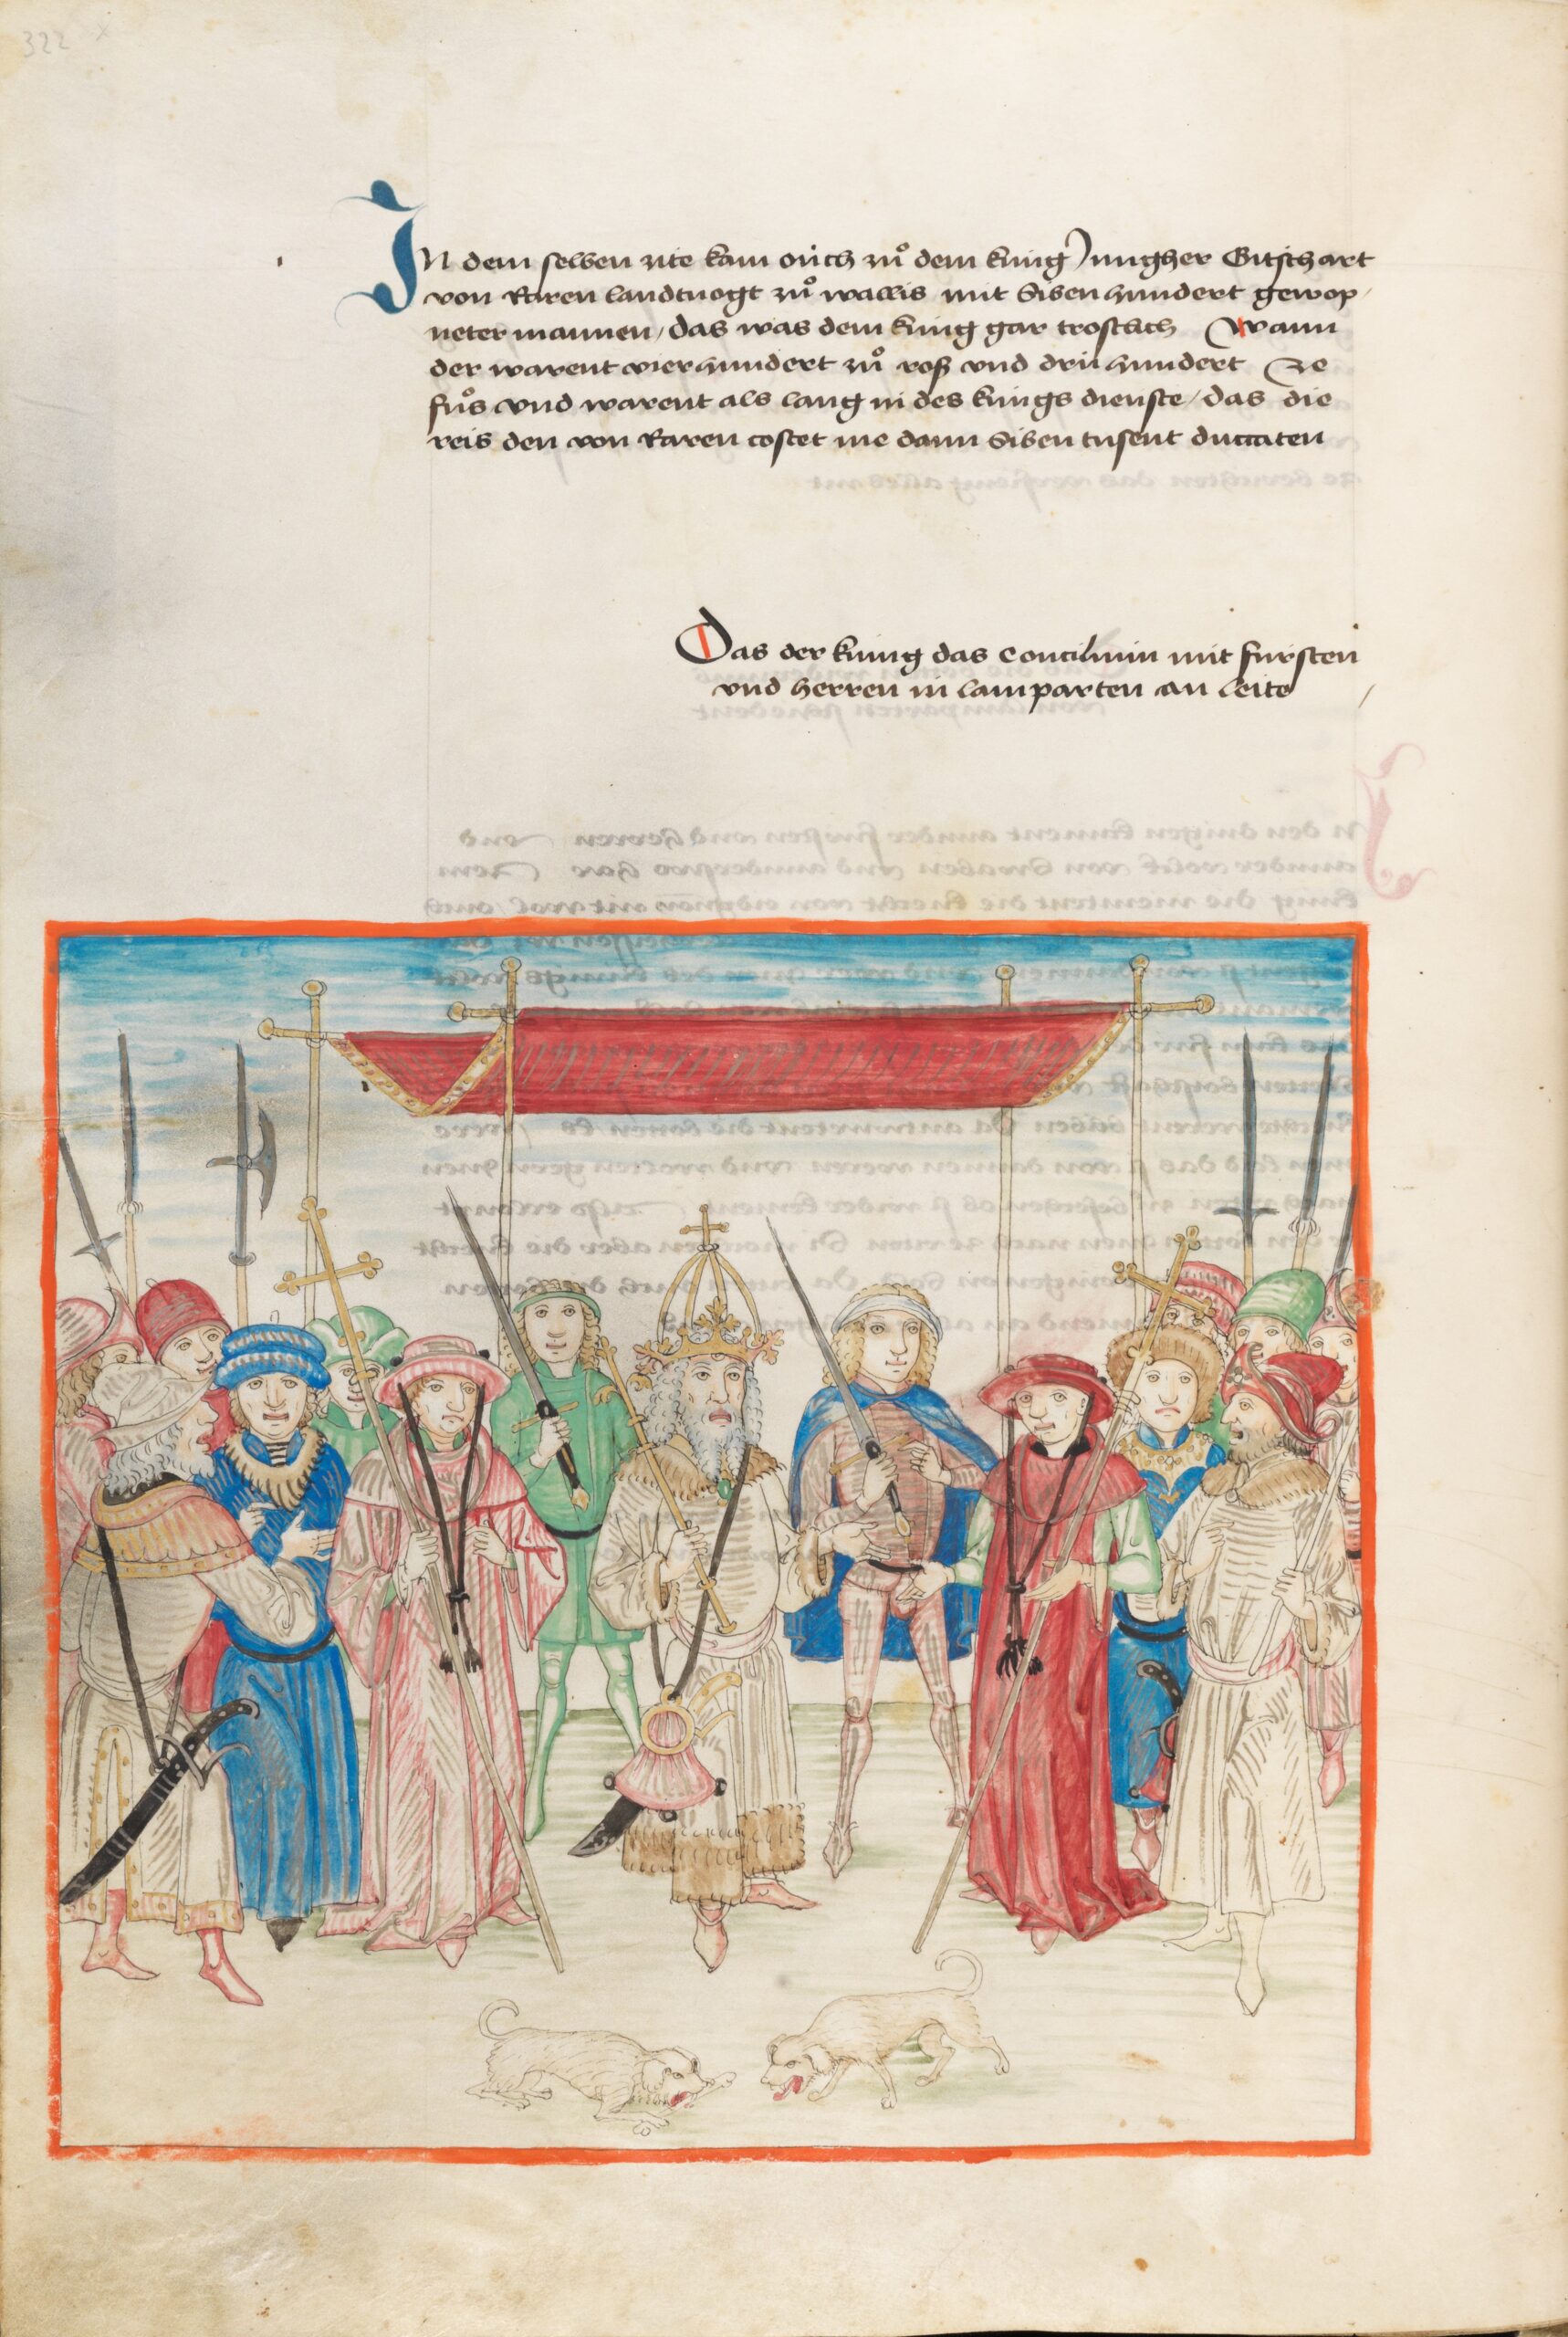 322 x
In dem selben zite kam oúch zů dem kúng Jungher Gitschart
von Raren landtuogt zů wallis mit siben hundert gewop
neter mannen / das was dem kúng gar trostlich Wann
der warent vier hundert zů roß vnd drú hundert ze
fůs vnd warent als lang in des kúngs dienste / das die
reis den von Raren costet me dann siben tusent duccaten
Das der kúng das concilium mit fúrsten
vnd herren in lamparten an leite